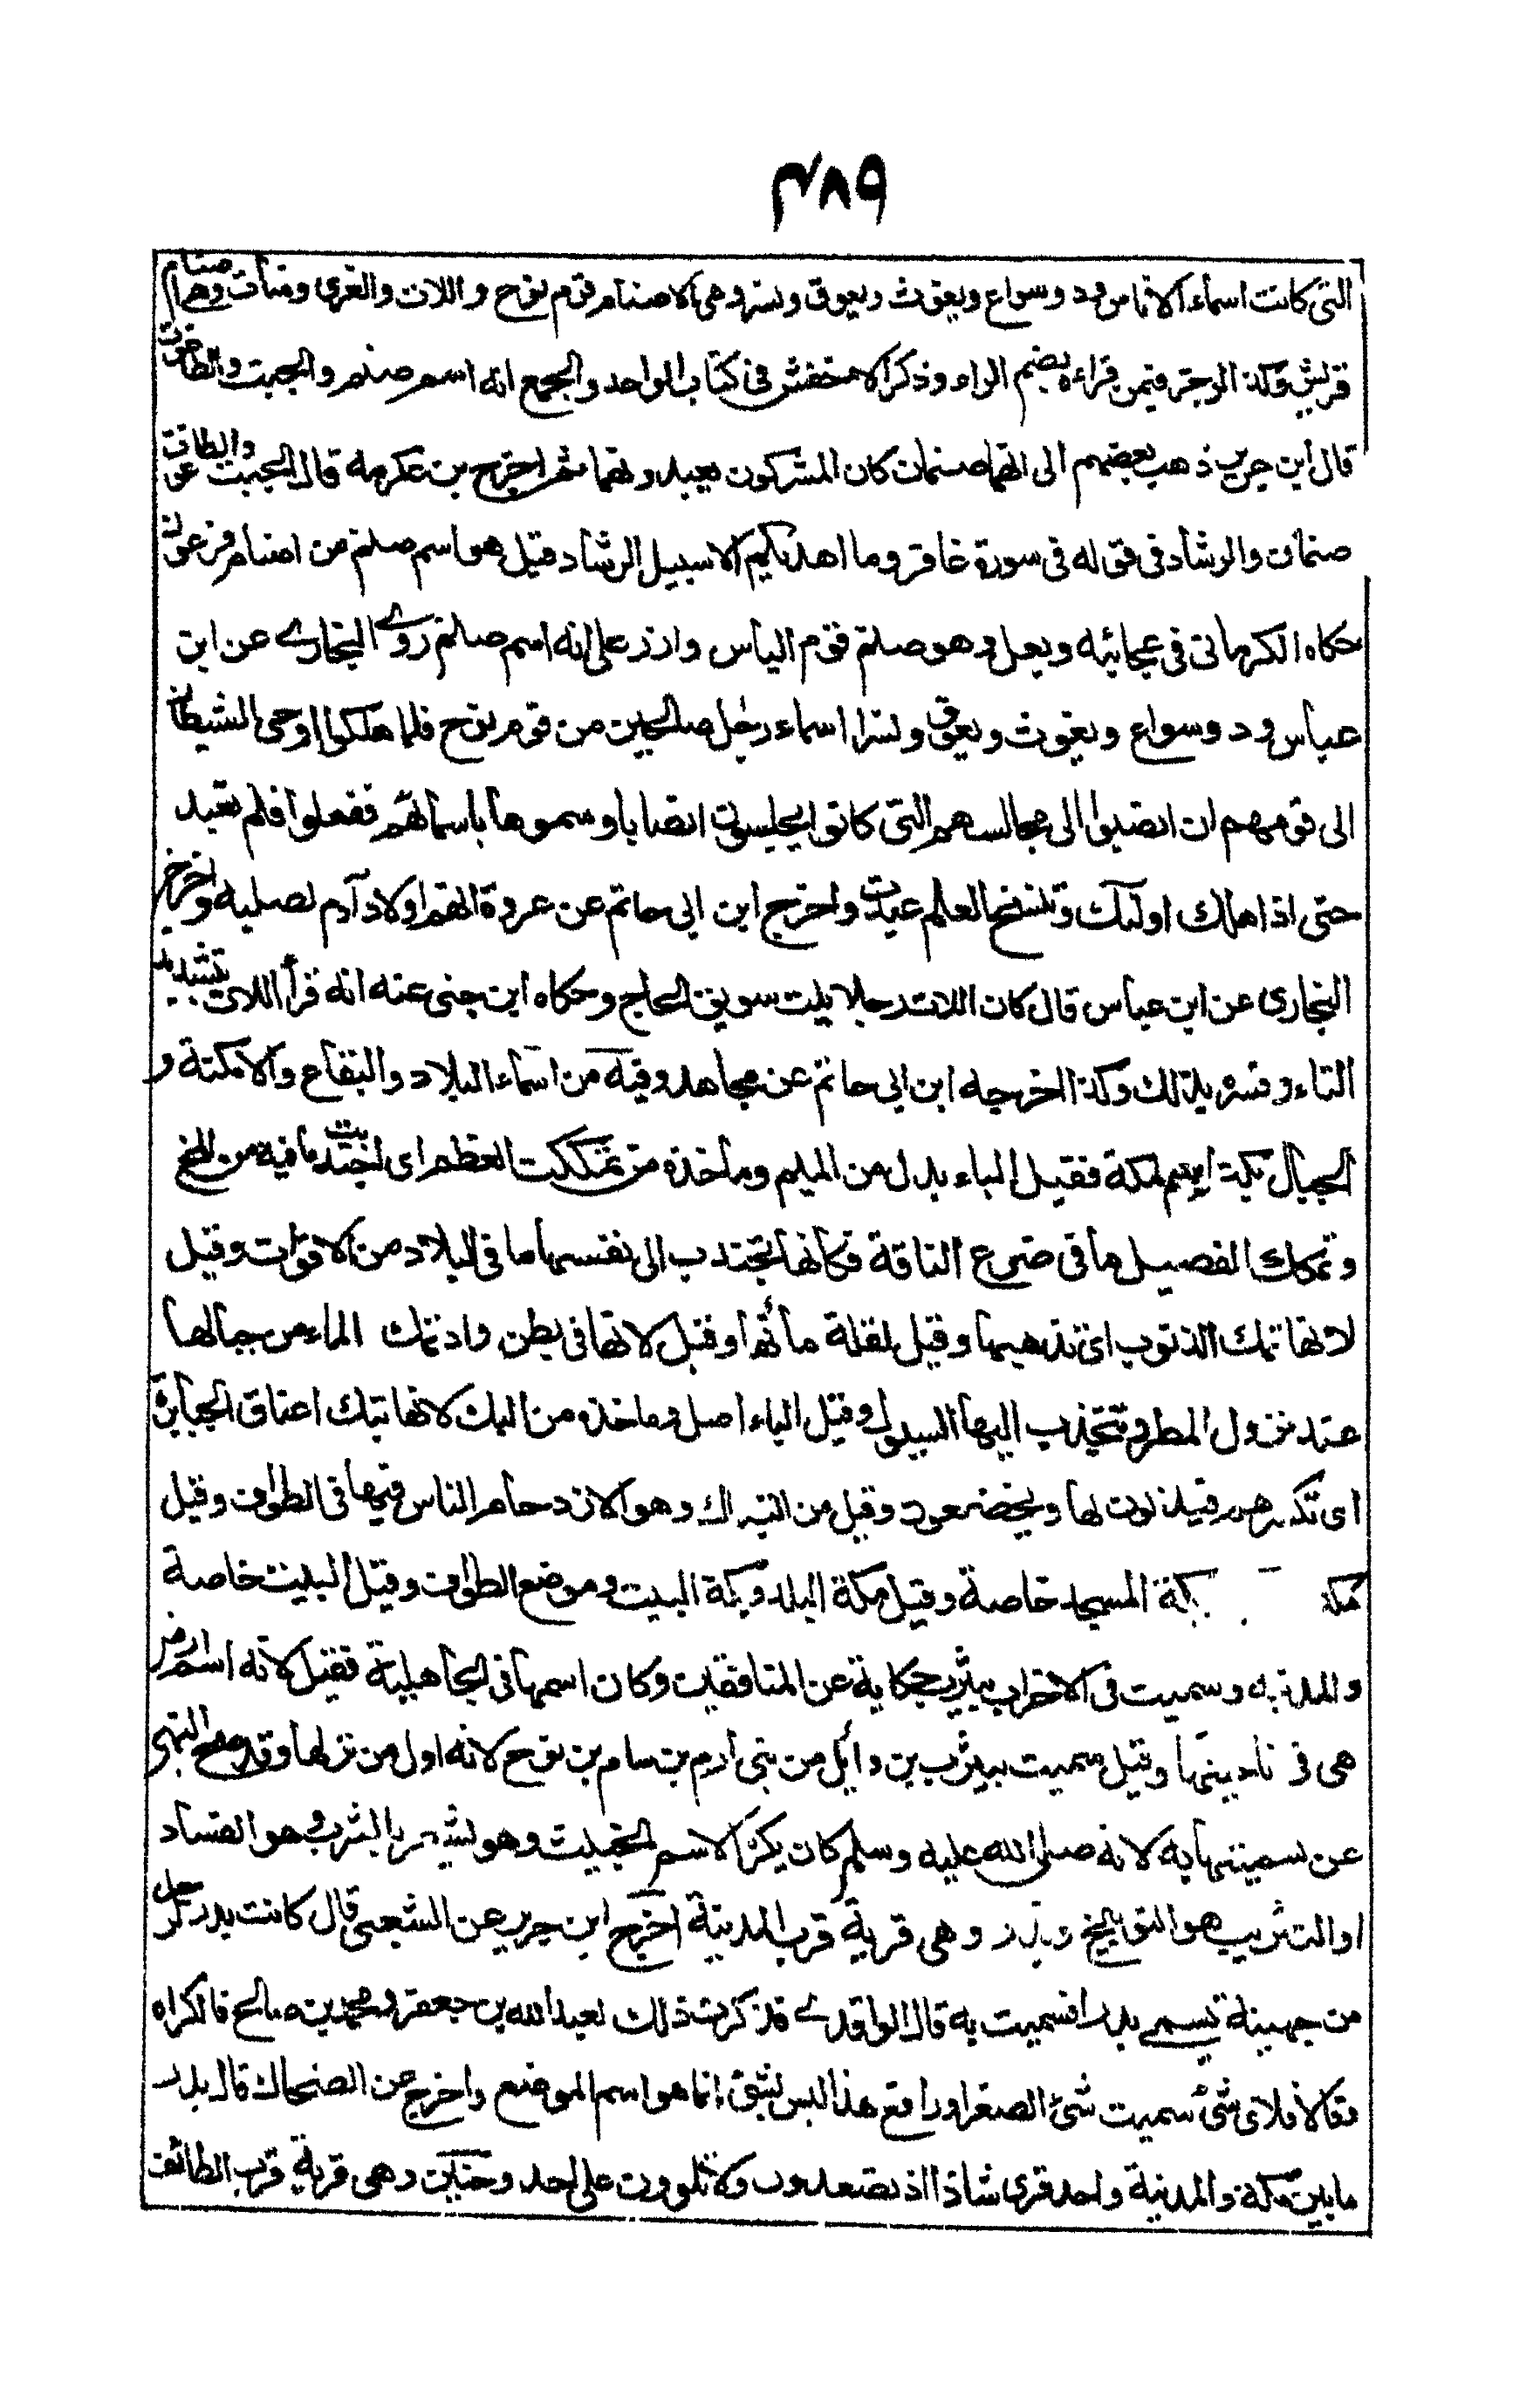 ٣٨٩
التى كانت اسماء الاناس ود وسواع ويغوث ويعوق ونسر وهى الاصنام قوم نوح واللات والعزى ومنات وهى اصنام
قريش وكذا الرجز فيمن قراءه بضم الراء وذكر الاخفش فى كتاب الواحد والجمع انه اسم صنم والجبت والطاغوت
قال ابن جرير ذهب بعضهم الى انهما صنمان كان المشركون يعبدونهما ثم اخرج عن عكرمه قال الجبت والطاغوت
صنمان والرشاد فى قوله فى سورة غافر وما اهديكم الا سبيل الرشاد قيل هو اسم صنم من اصنام فرعون
حكاه الكرمانى فى عجائبه وبعل وهو صنم قوم الياس وازر على انه اسم صنم روى البخارى عن ابن
عباس ود وسواع ويغوث ويعوق ونسرا اسماء رجل صالحين من قوم نوح فلما هلكوا اوحى الشيطان
الى قومهم ان انصبوا الى مجالسهم التى كانوا يجلسون انصابا وسموها باسمائهم ففعلوا فلم تعبد
حتى اذا هلك اولئك وتنسخ العلم عبدت واخرج ابن ابى حاتم عن عروة انهم اولاد آدم لصلبه واخرج
البخارى عن ابن عباس قال كان اللات رجلا يلت سويق الحاج وحكاه ابن جنى عنه انه قرأ اللات بتشديد
التاء وفسره بذلك وكذا اخرجه ابن ابى حاتم عن مجاهد وفيه من اسماء البلاد والبقاع والامكنة و
الجبال بكة اسم لمكة فقيل الباء بدل من الميم وماخذه من تمككت العظم اى اجتذبت ما فيه من المخ
وتمكك الفصيل ما فى ضرع الناقة فكانها تجتذب الى نفسها ما فى البلاد من الاقوات وقيل
لانها تمك الذنوب اى تذهبها وقيل لقلة مائها وقيل لانها فى بطن واد تمك الماء من جبالها
عند نزول المطر وتنجذب اليها السيول وقيل الباء اصل وماخذه من البك لانها تبك اعناق الجبابرة
اى تكسرهم فيذلون لها ويخضعون وقيل من التباك وهو الازدحام الناس فيها فى الطواف وقيل
مكة بكة المسجد خاصة وقيل مكة البلد وبكة البيت وموضع الطواف وقيل البيت خاصة
والمدينه وسميت فى الاحزاب بيثرب حكاية عن المنافقين وكان اسمها فى الجاهلية فقيل لانه اسم ارض
هى فى ناحيتها وقيل سميت بيثرب بن وائل من بنى ارم بن سام بن نوح لانه اول من نزلها وقد صح النهى
عن تسميتها به لانه صلى الله عليه وسلم كان يكره الاسم الخبيث وهو يشعر بالثرب وهو الفساد
او التثريب هو التوبيخ وبدر وهى قرية قرب المدينة اخرج ابن جرير عن الشعبى قال كانت بدر لرجل
من جهينة تسمى بدرا فسميت به قال الواقدى فذكرت ذلك لعبد الله بن جعفر ومحمد بن صالح فانكراه
وقالا فلاى شئ سميت شئ الصفرا ورابغ هذا ليس بشئ انما هو اسم الموضع واخرج عن الضحاك قال بدر
ما بين مكة والمدينة واحد قرى شاذا اذ تصعدون ولا تلوون على احد وحنين وهى قرية قرب الطائف